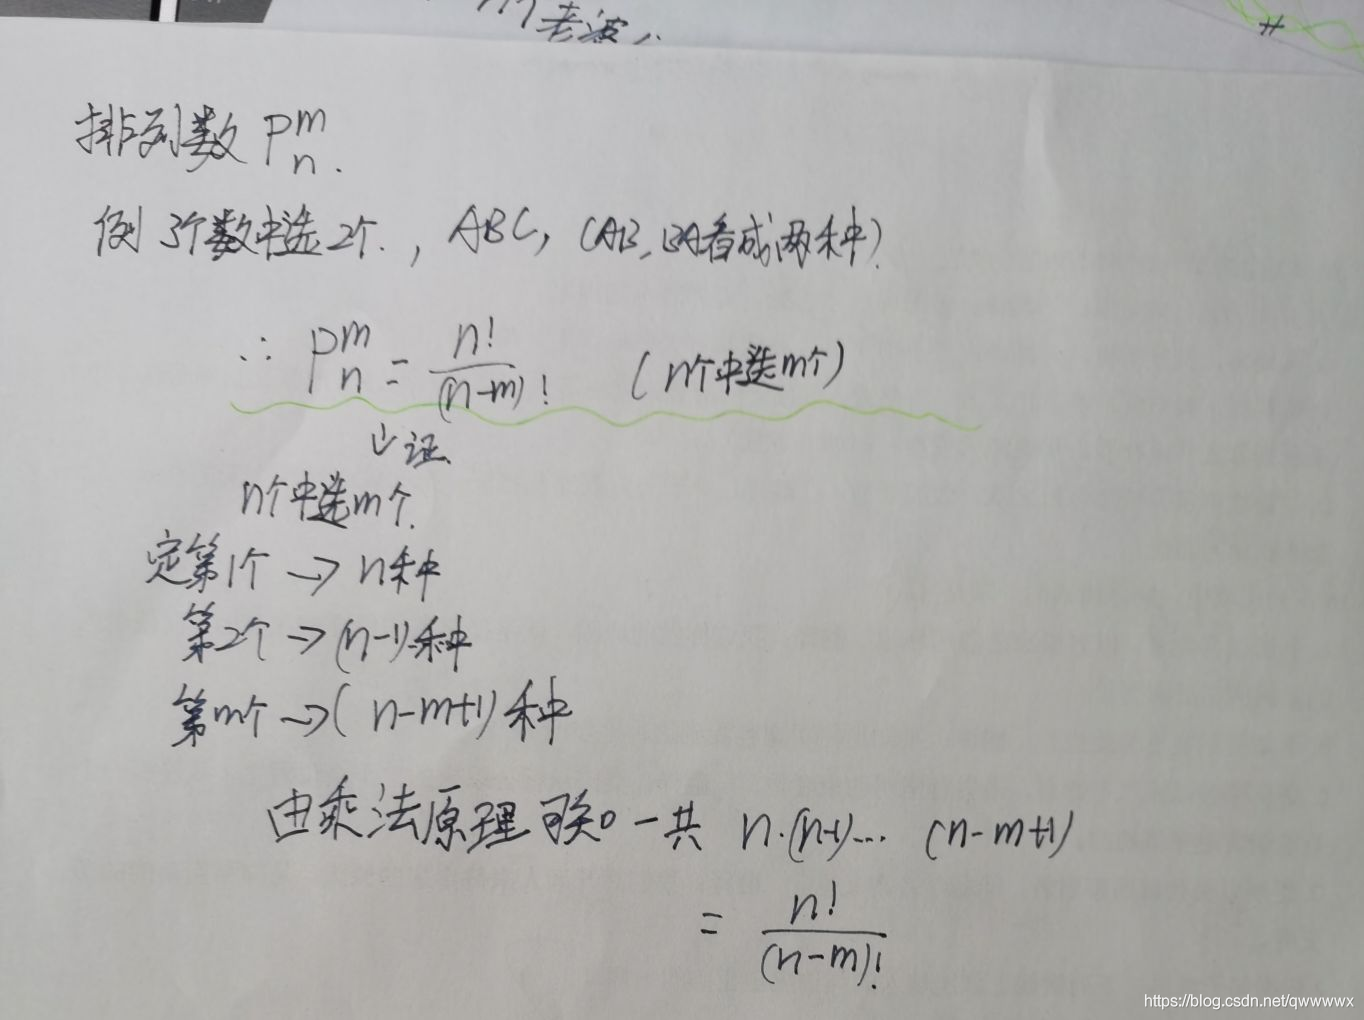 考渡
#
排列数 P_n^m.
例 3个数中选2个., ABC, (AB, BA看成两种).
∴ P_n^m = n!/(n-m)! (n个中选m个)
↓证
n个中选m个.
定第1个 → n种
第2个 → (n-1)种
第m个 → (n-m+1)种
由乘法原理可知 一共 n·(n-1)... (n-m+1)
= n!/(n-m)!
https://blog.csdn.net/qwwwwx